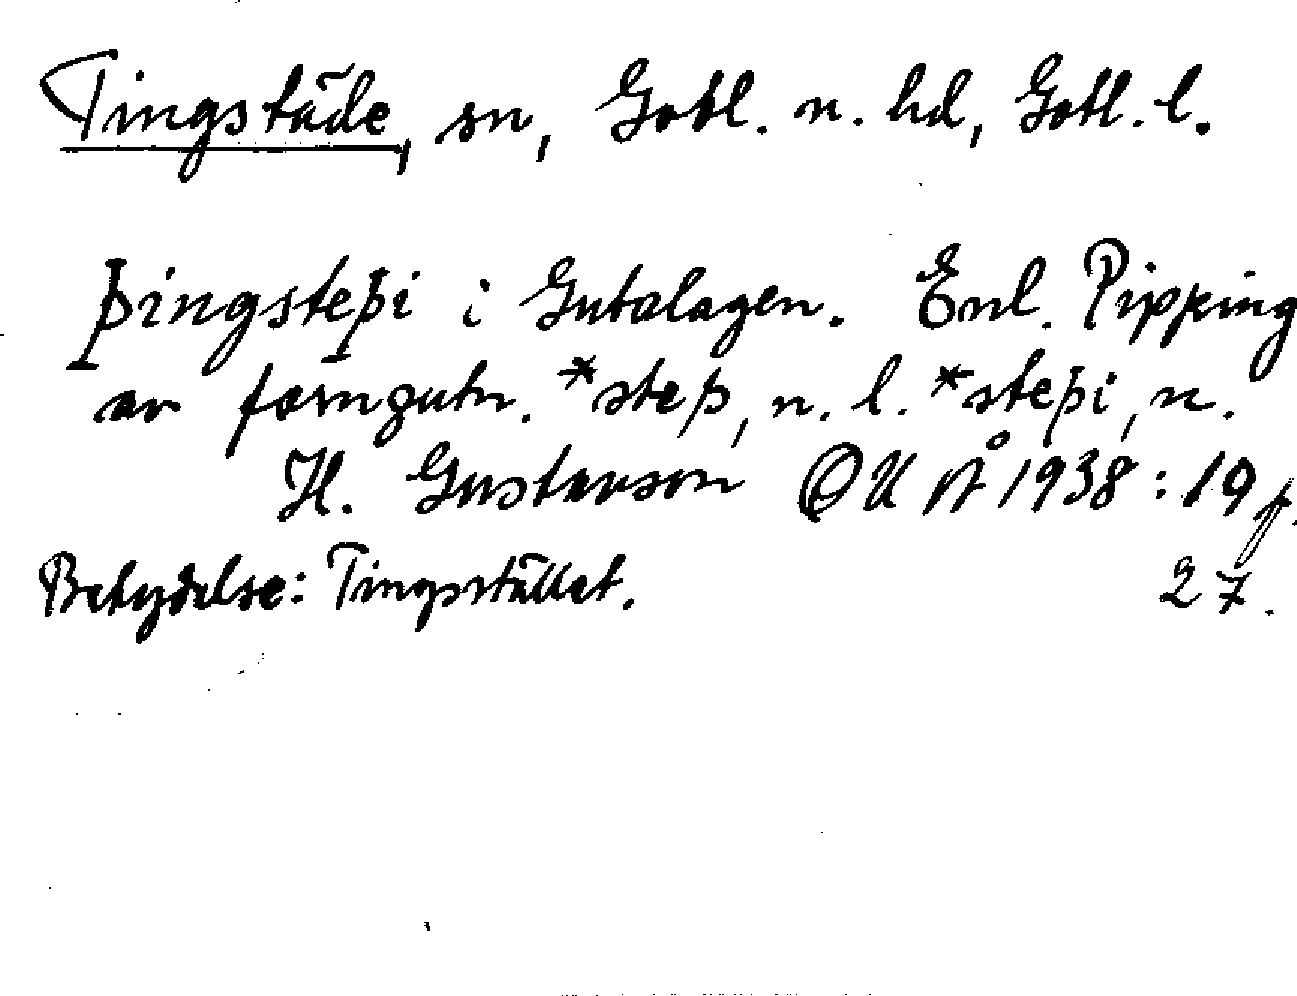 Tingstäde, sn, Gotl. n. hd, Gotl. l.
þingsteþi i Gutalagen. Enl. Pipping
av forngutn. *steþ, n. l. *steþi, n.
H. Gustavson OUÅ 1938: 19 f.
Betydelse: Tingstället. 27.